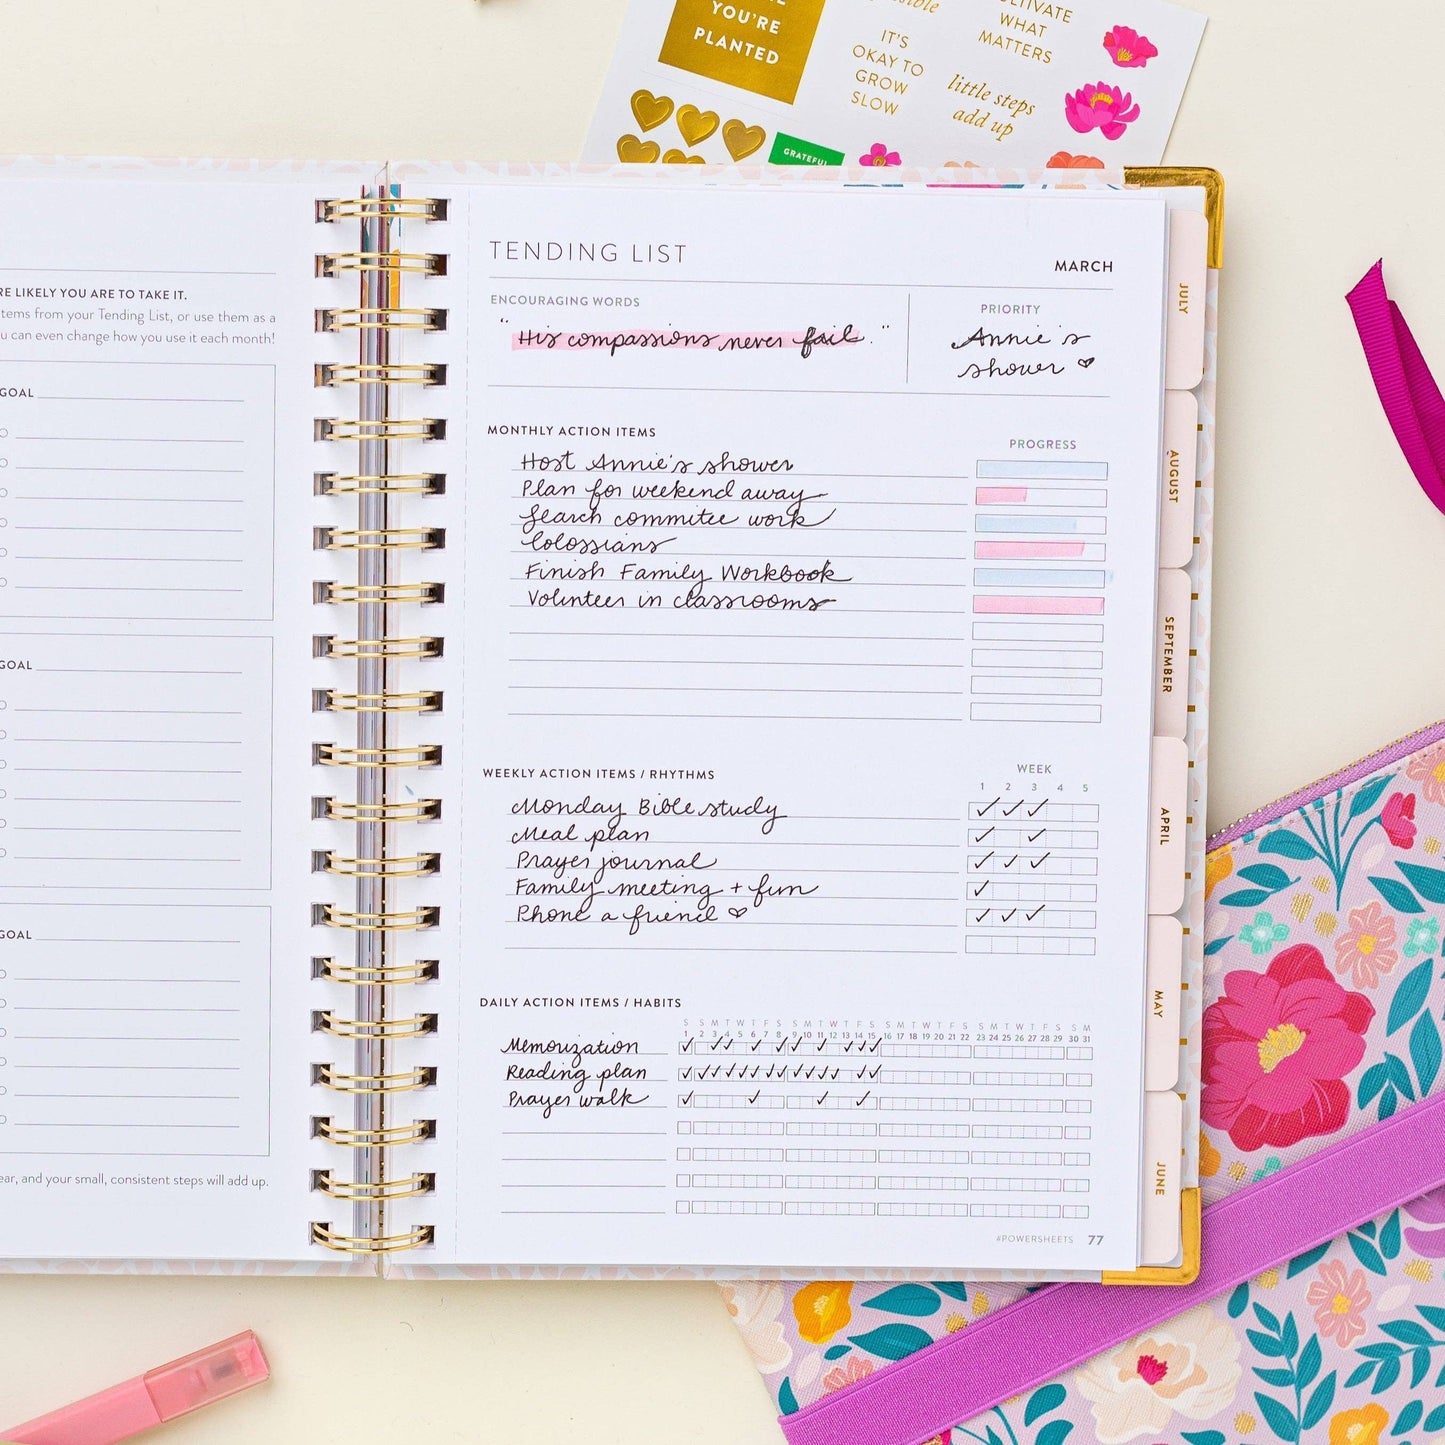 YOU'RE
PLANTED
IT'S
OKAY TO
GROW
SLOW
WHAT
MATTERS
little steps
add up
GRATEFUL
LIKELY YOU ARE TO TAKE IT.
from your Tending List, or use them as a
can even change how you use it each month!
GOAL
GOAL
GOAL
and your small, consistent steps will add up.
TENDING LIST
MARCH
ENCOURAGING WORDS
"His compassions never fail."
PRIORITY
Annie's
shower ♡
MONTHLY ACTION ITEMS
PROGRESS
Host Annie's shower
Plan for weekend away
Search commitee work
Colossians
Finish Family Workbook
Volunteer in classrooms
WEEKLY ACTION ITEMS / RHYTHMS
WEEK
1 2 3 4 5
Monday Bible study ✓ ✓ ✓
Meal plan ✓ ✓
Prayer journal ✓ ✓ ✓
Family meeting + fun ✓
Phone a friend ♡ ✓ ✓ ✓
DAILY ACTION ITEMS / HABITS
S S M T W T F S S M T W T F S S M T W T F S S M T W T F S S M
1 2 3 4 5 6 7 8 9 10 11 12 13 14 15 16 17 18 19 20 21 22 23 24 25 26 27 28 29 30 31
Memorization
Reading plan
Prayer walk
#POWERSHEETS 77
JULY
AUGUST
SEPTEMBER
APRIL
MAY
JUNE